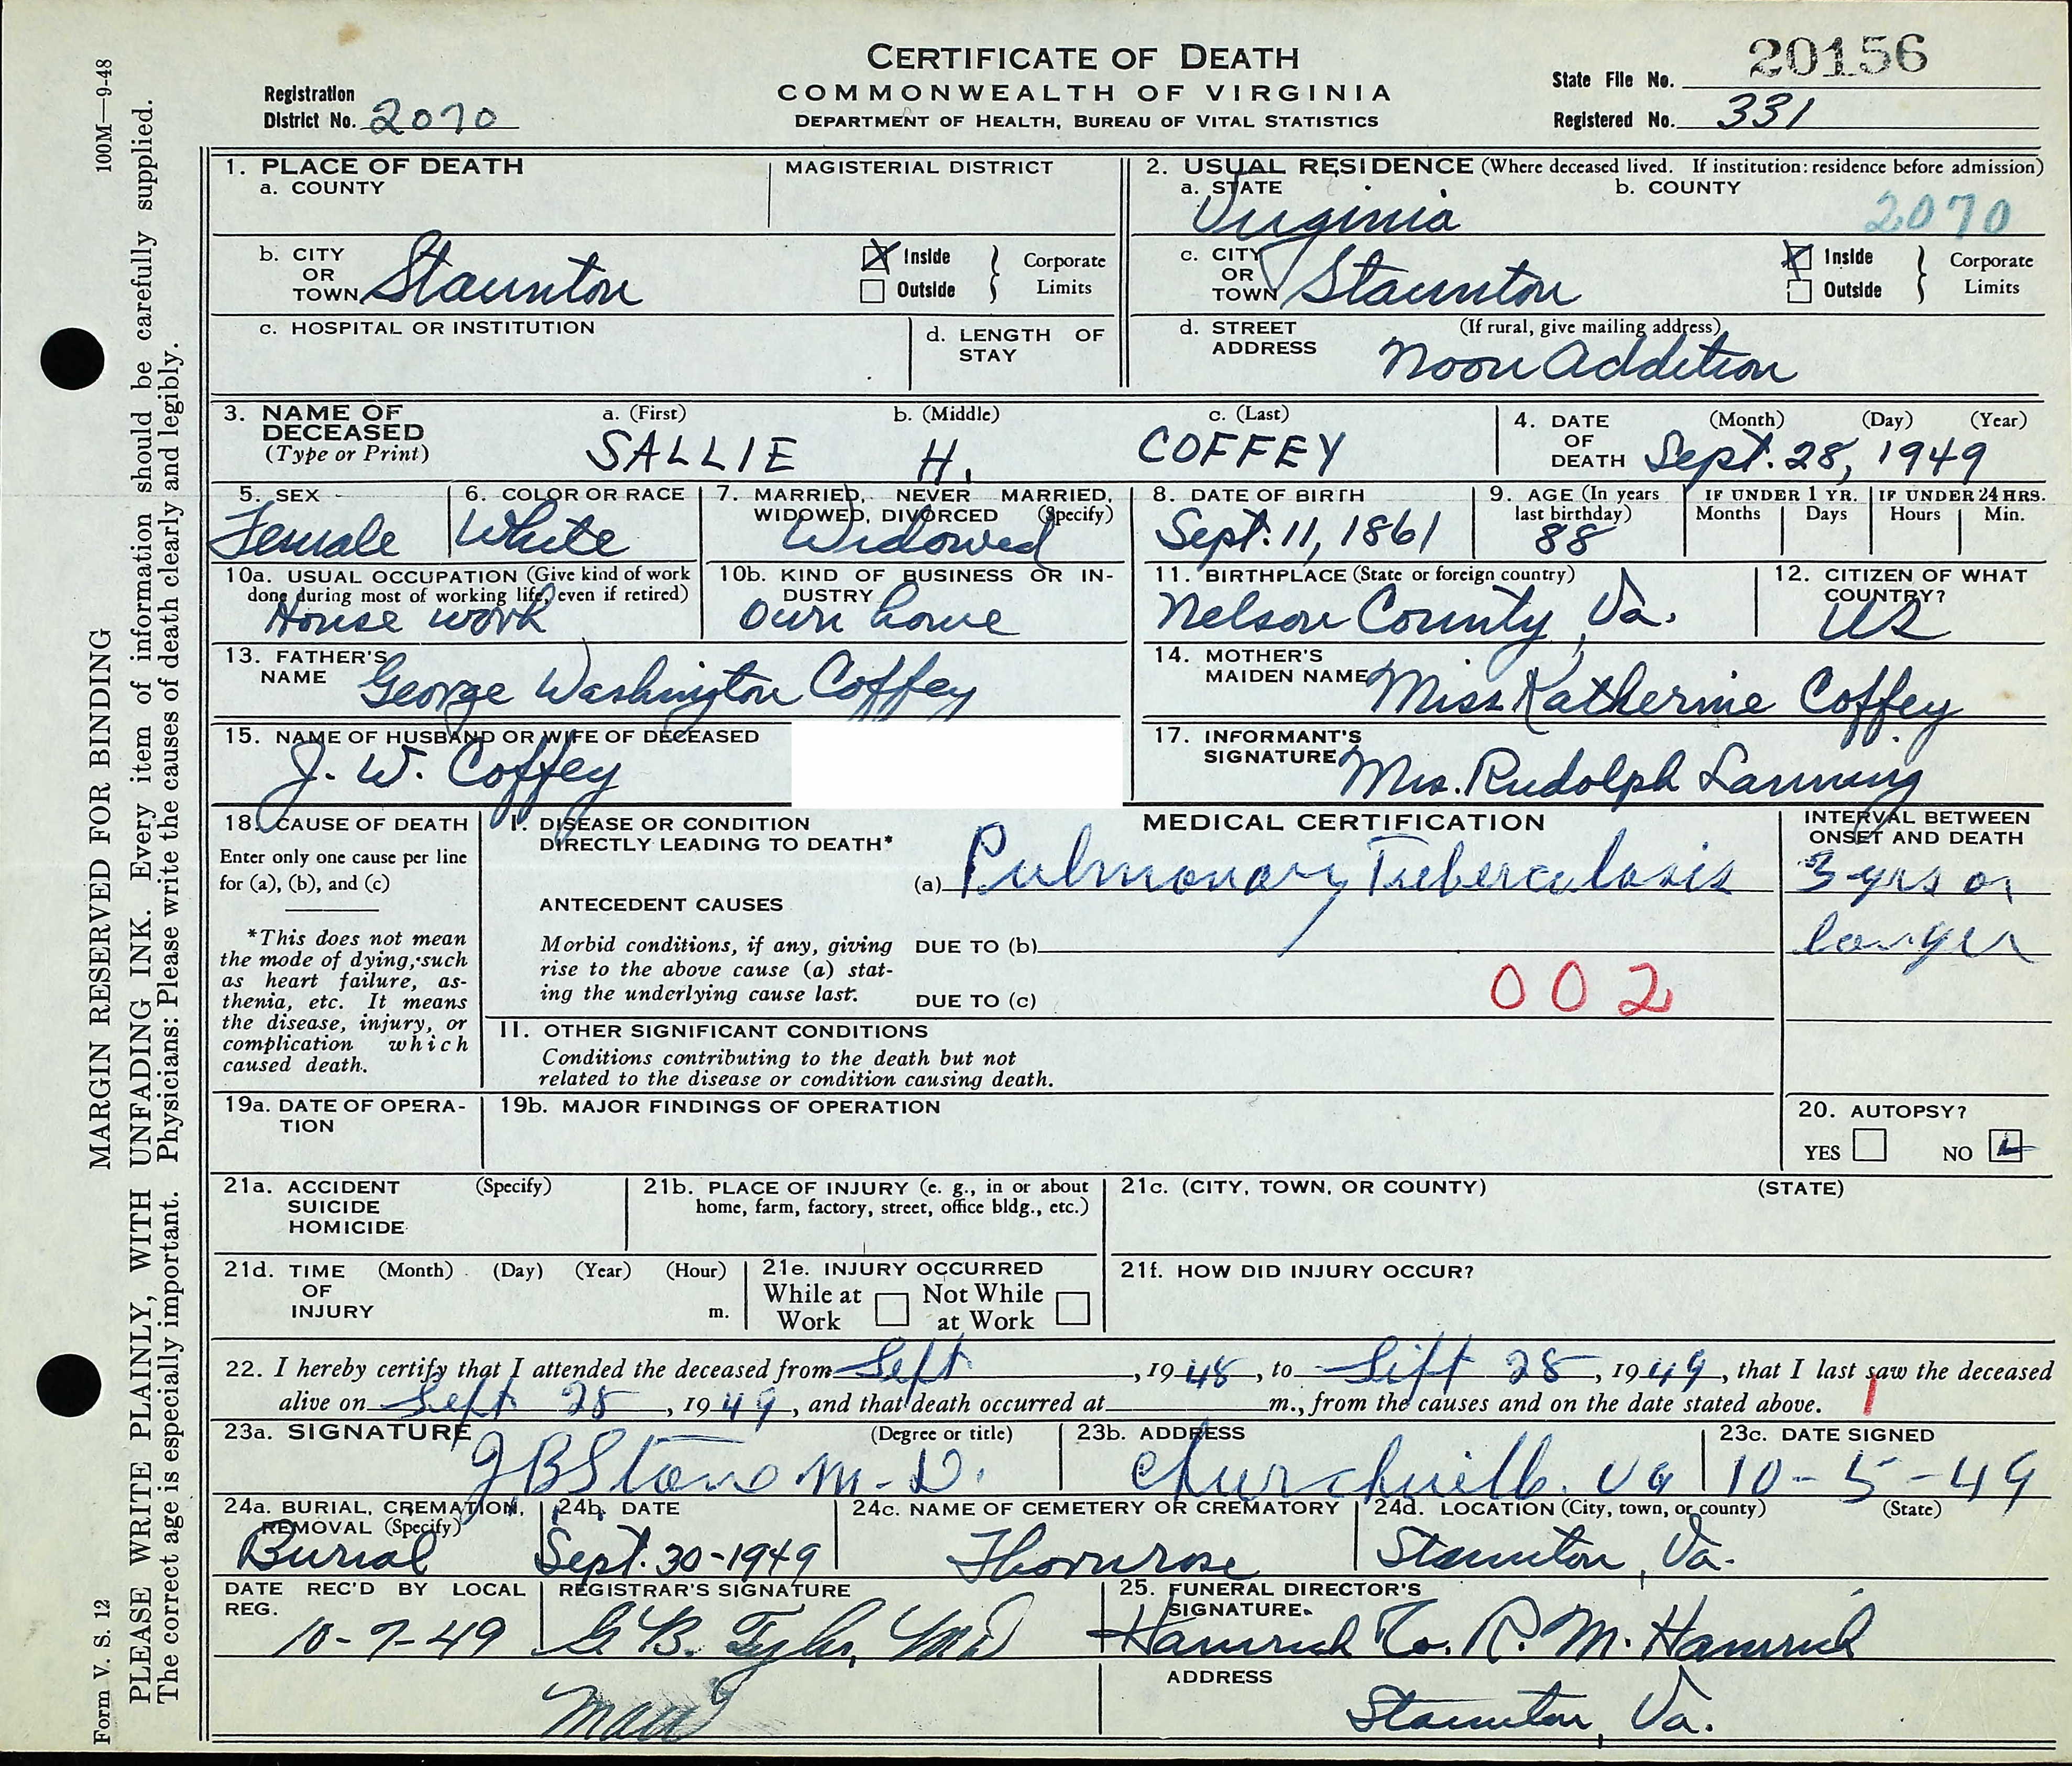 CERTIFICATE OF DEATH
COMMONWEALTH OF VIRGINIA
DEPARTMENT OF HEALTH, BUREAU OF VITAL STATISTICS
Registration
District No. 2070
State File No. 20156
Registered No. 331
1. PLACE OF DEATH
a. COUNTY
MAGISTERIAL DISTRICT
2. USUAL RESIDENCE (Where deceased lived. If institution: residence before admission)
a. STATE Virginia
b. COUNTY 2070
b. CITY OR TOWN Staunton
Inside
Outside
Corporate Limits
c. CITY OR TOWN Staunton
Inside
Outside
Corporate Limits
c. HOSPITAL OR INSTITUTION
d. LENGTH OF STAY
d. STREET ADDRESS (If rural, give mailing address)
Noon Addition
3. NAME OF DECEASED (Type or Print)
a. (First) b. (Middle) c. (Last)
SALLIE H. COFFEY
4. DATE OF DEATH (Month) (Day) (Year)
Sept. 28, 1949
5. SEX
Female
6. COLOR OR RACE
White
7. MARRIED, NEVER MARRIED, WIDOWED, DIVORCED (Specify)
Widowed
8. DATE OF BIRTH
Sept. 11, 1861
9. AGE (In years last birthday)
88
IF UNDER 1 YR. Months Days
IF UNDER 24 HRS. Hours Min.
10a. USUAL OCCUPATION (Give kind of work done during most of working life, even if retired)
House work
10b. KIND OF BUSINESS OR INDUSTRY
Own home
11. BIRTHPLACE (State or foreign country)
Nelson County, Va.
12. CITIZEN OF WHAT COUNTRY?
US
13. FATHER'S NAME
George Washington Coffey
14. MOTHER'S MAIDEN NAME
Miss Katherine Coffey
15. NAME OF HUSBAND OR WIFE OF DECEASED
J. W. Coffey
17. INFORMANT'S SIGNATURE
Mrs. Rudolph Lanning
18. CAUSE OF DEATH
Enter only one cause per line for (a), (b), and (c)
*This does not mean the mode of dying, such as heart failure, asthenia, etc. It means the disease, injury, or complication which caused death.
MEDICAL CERTIFICATION
I. DISEASE OR CONDITION DIRECTLY LEADING TO DEATH*
(a) Pulmonary Tuberculosis
INTERVAL BETWEEN ONSET AND DEATH
3 yrs or
longer
ANTECEDENT CAUSES
Morbid conditions, if any, giving rise to the above cause (a) stating the underlying cause last.
DUE TO (b)
DUE TO (c)
002
II. OTHER SIGNIFICANT CONDITIONS
Conditions contributing to the death but not related to the disease or condition causing death.
19a. DATE OF OPERATION
19b. MAJOR FINDINGS OF OPERATION
20. AUTOPSY?
YES NO
21a. ACCIDENT SUICIDE HOMICIDE (Specify)
21b. PLACE OF INJURY (e. g., in or about home, farm, factory, street, office bldg., etc.)
21c. (CITY, TOWN, OR COUNTY) (STATE)
21d. TIME OF INJURY (Month) (Day) (Year) (Hour) m.
21e. INJURY OCCURRED
While at Work Not While at Work
21f. HOW DID INJURY OCCUR?
22. I hereby certify that I attended the deceased from Sept, 1948, to Sept 28, 1949, that I last saw the deceased
alive on Sept 28, 1949, and that death occurred at m., from the causes and on the date stated above. 1
23a. SIGNATURE (Degree or title)
J B Stone M-D.
23b. ADDRESS
Churchville. Va
23c. DATE SIGNED
10-5-49
24a. BURIAL, CREMATION, REMOVAL (Specify)
Burial
24b. DATE
Sept. 30-1949
24c. NAME OF CEMETERY OR CREMATORY
Thornrose
24d. LOCATION (City, town, or county) (State)
Staunton, Va.
DATE REC'D BY LOCAL REG.
10-7-49
REGISTRAR'S SIGNATURE
G. B. Tyler, MD
25. FUNERAL DIRECTOR'S SIGNATURE
Hamrick Co. R. M. Hamrick
ADDRESS
Staunton, Va.
100M—9-48
MARGIN RESERVED FOR BINDING
PLEASE WRITE PLAINLY, WITH UNFADING INK. Every item of information should be carefully supplied.
The correct age is especially important. Physicians: Please write the causes of death clearly and legibly.
Form V. S. 12